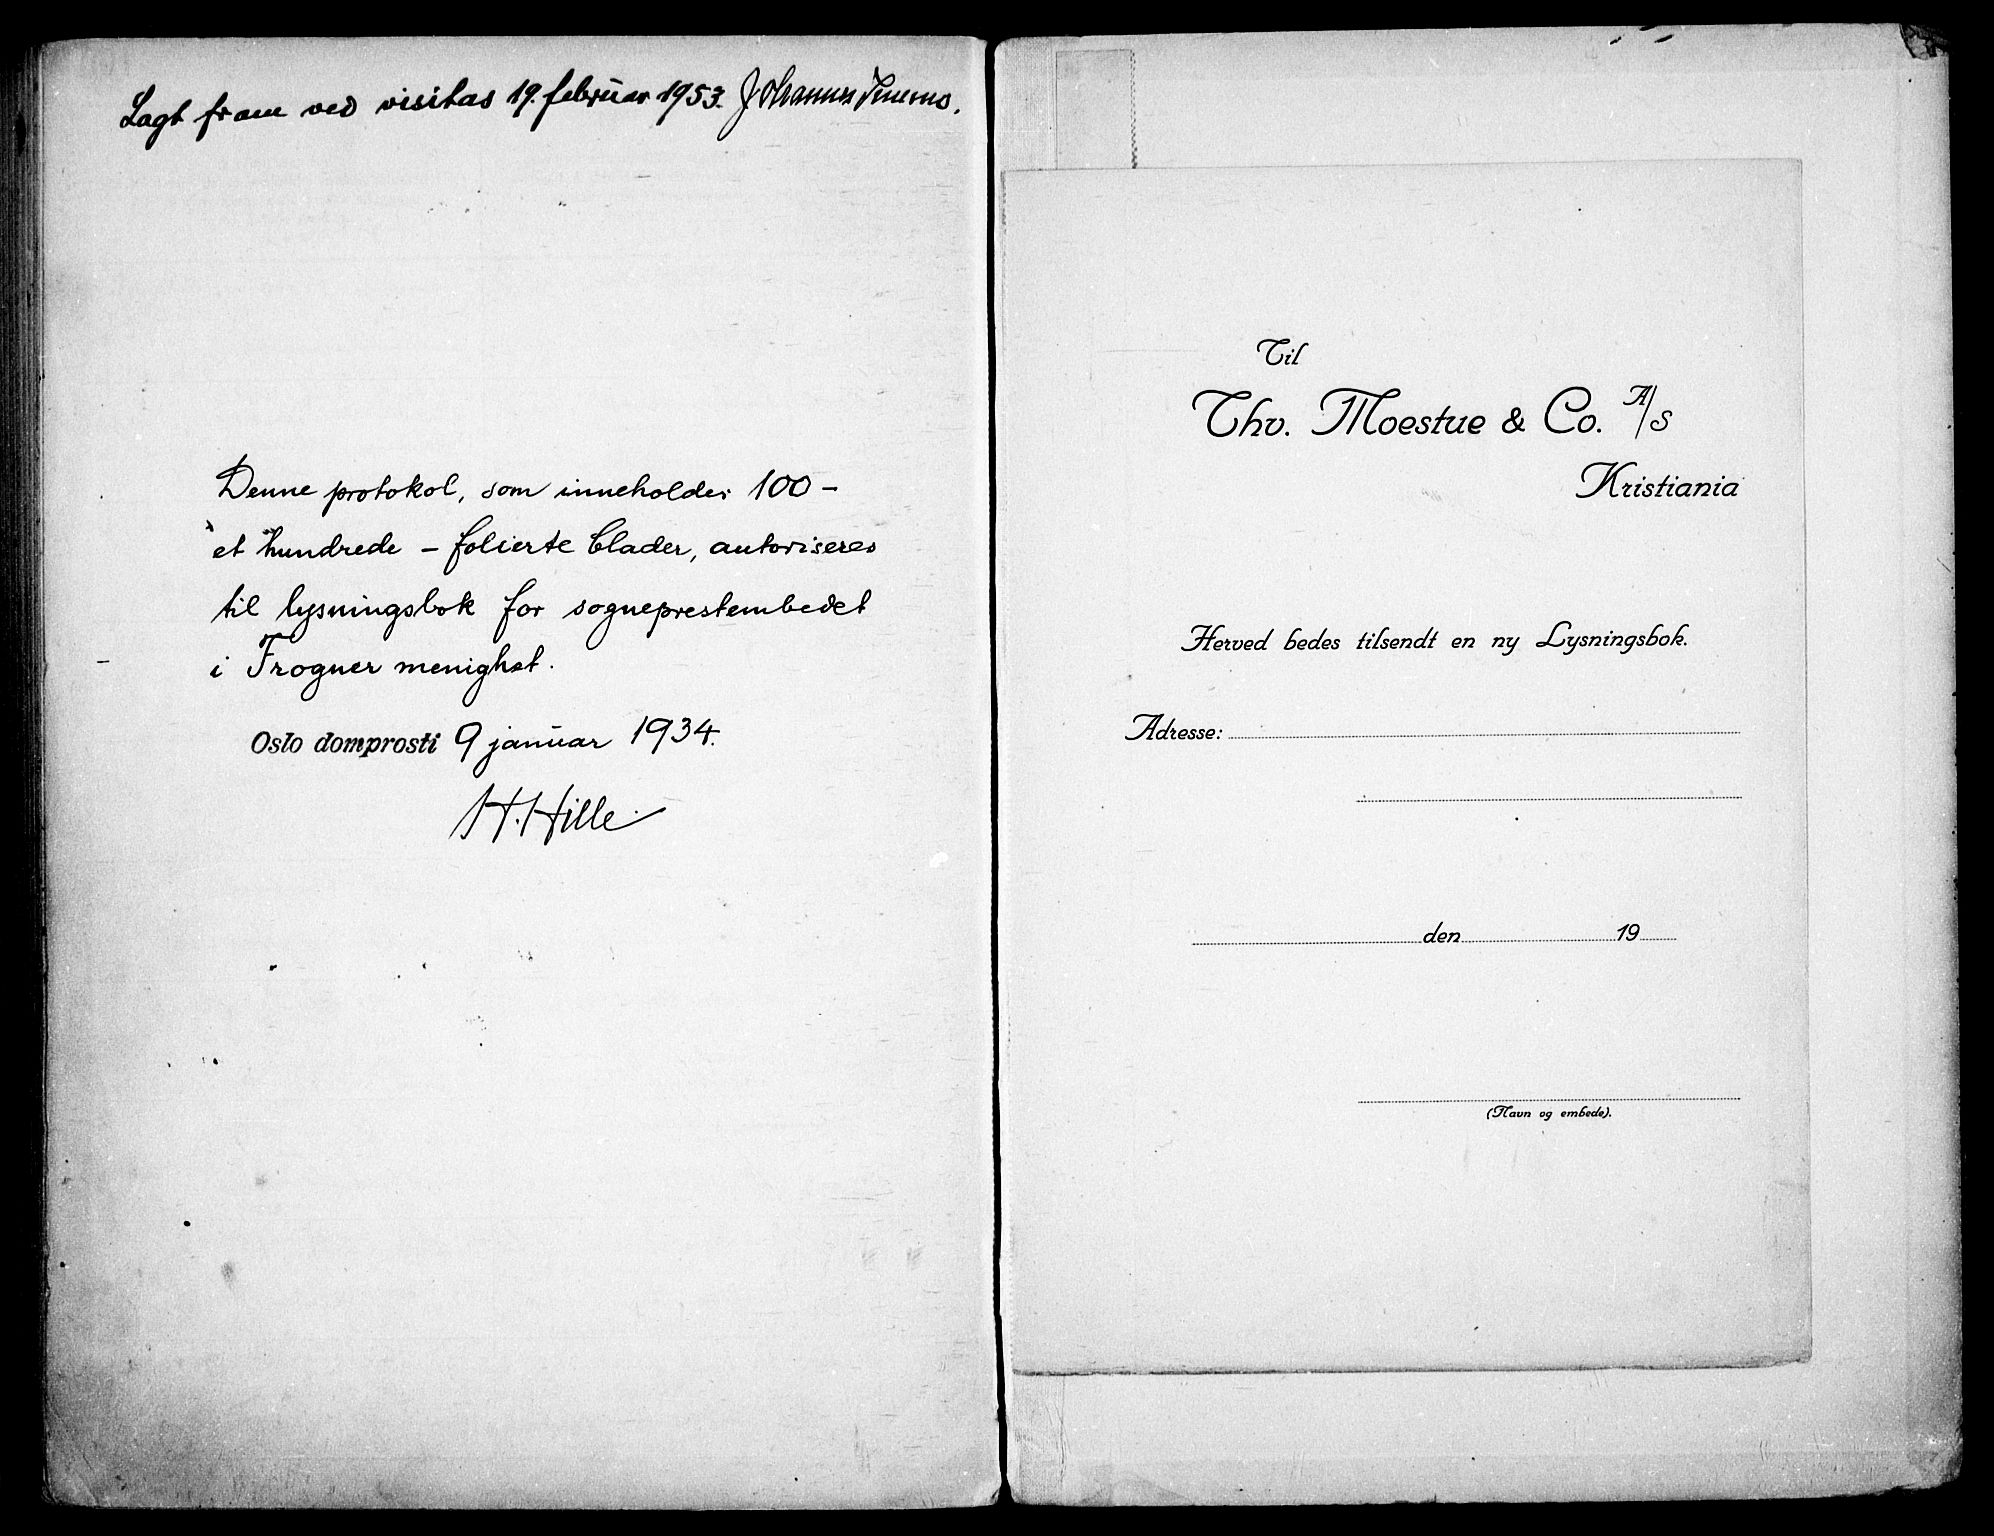 Lagt fram ved visitas 19. februar 1953. Johannes Smemo.
Denne protokol, som inneholder 100 –
et hundrede – folierte blader, autoriseres
til lysningsbok for sogneprestembedet
i Frogner menighet.
Oslo domprosti 9 januar 1934.
H. Hille
Til
Thv. Moestue & Co. A/S
Kristiania
Herved bedes tilsendt en ny Lysningsbok.
Adresse:
den 19
(Navn og embede).